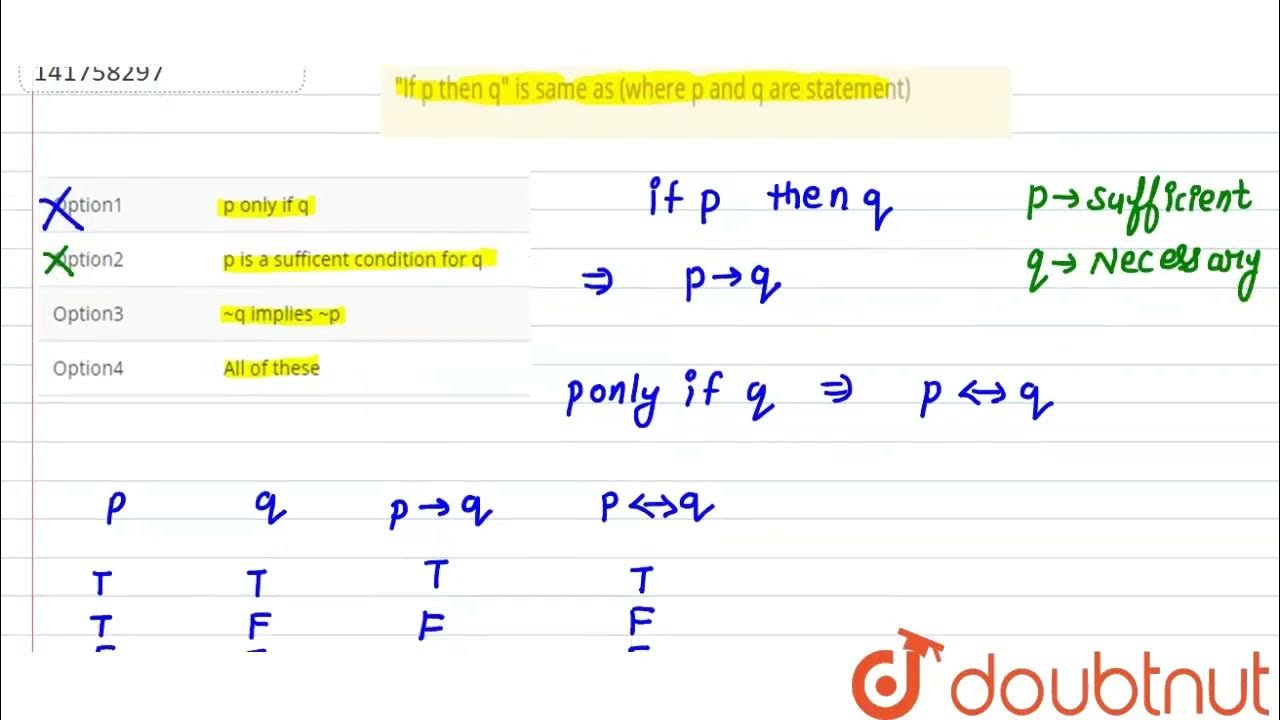 141758297
"If p then q" is same as (where p and q are statement)
Option1 p only if q
Option2 p is a sufficent condition for q
Option3 ~q implies ~p
Option4 All of these
if p then q
⇒ p → q
p → sufficient
q → Necessary
p only if q ⇒ p ↔ q
p q p → q p ↔ q
T T T T
T F F F
doubtnut